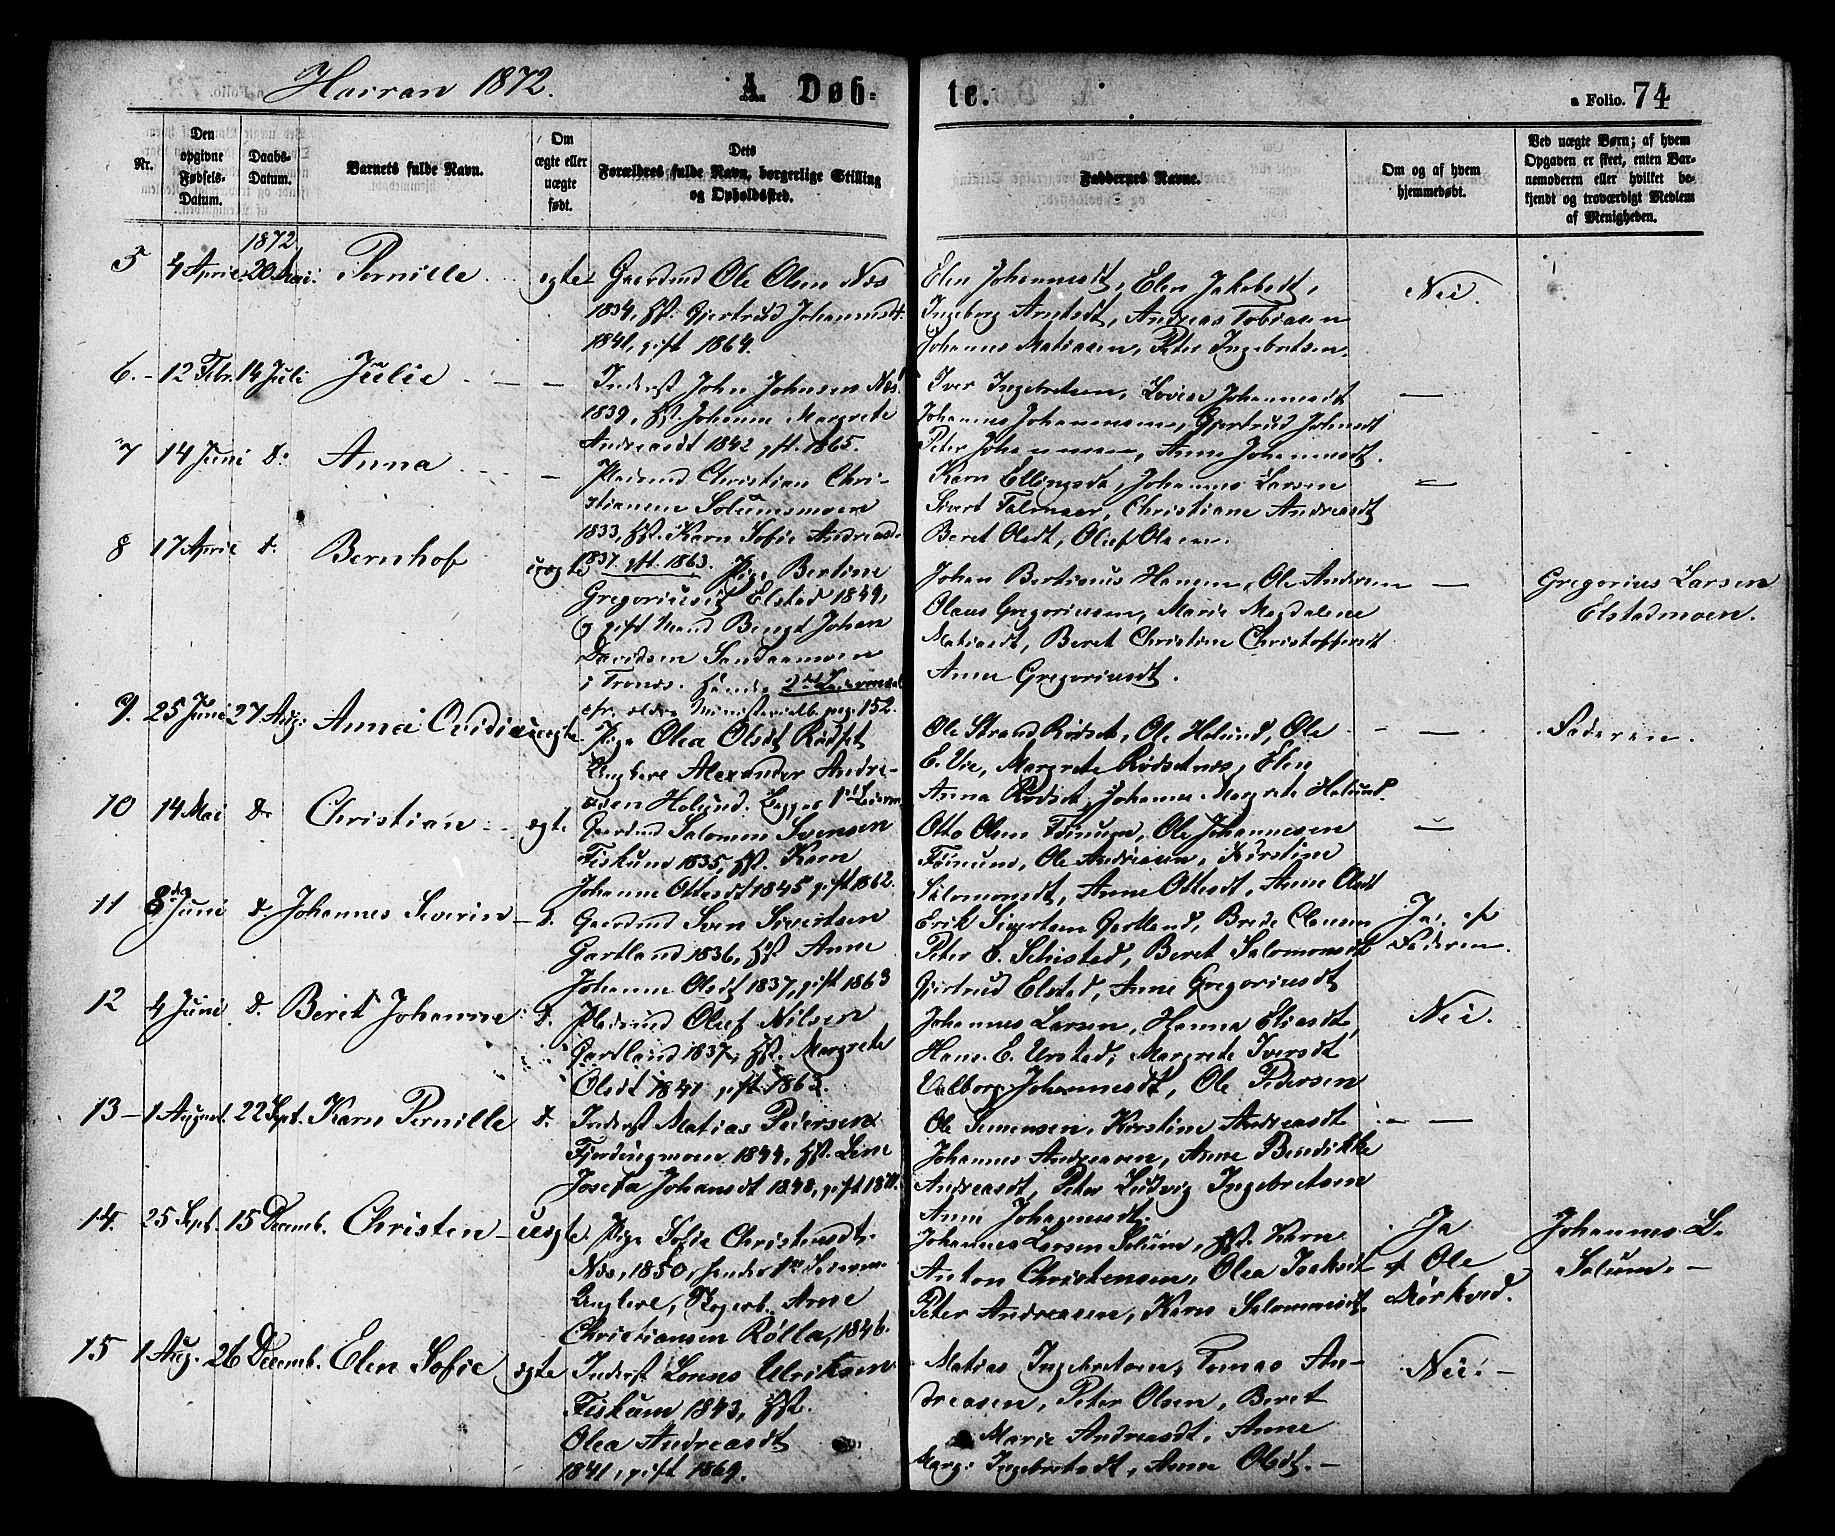 Harran 1872. A Døb-
te.
a Folio. 74
Nr.
Den opgivne Fødsels-Datum.
Daabs-Datum.
Barnets fulde Navn.
Om ægte eller uægte født.
Dets Forældres fulde Navn, borgerlige Stilling og Opholdssted.
Faddernes Navne.
Om og af hvem hjemmedøbt.
Ved uægte Børn; af hvem Opgaven er skeet, enten Barnemoderen eller hvilket bekjendt og troværdigt Medlem af Menigheden.
1872.
5 4 April 20 Mai. Pernille egte Gaardmd Ole Olsen Næs
1834, Hst. Gjertrud Johannesdt.
1841, gift 1864.
Elen Johannesdt, Elen Jakobsdt,
Ingeborg Arntsdt, Andreas Tobiasen
Johannes Matiasen, Peter Ingebretsen.
Nei.
6. - 12 Febr. 14 Juli Julie - - Inderst John Johnsen Næs
1839, Hst. Johanna Margrete
Andreasdt 1842 gft. 1865.
Iver Ingebretsen, Lovise Johannesdt
Johannes Johannesen, Gjertrud Johnsdt
Peter Johannesen, Anne Johannesdt.
—
7 14 Juni d: Anna - Pladsmd Christian Chri-
stiansen Solumsmoen
1833, Hst. Karn Sofie Andreasd.
1837. gft. 1863.
Karn Ellingsdt, Johannes Larsen
Sivert Falmaar, Christiane Andreasdt
Beret Olsdt, Oluf Olsen.
—
8 17 April d. Bernhof uægte Pige Bertine
Gregoriusdt Elstad 1849,
og gift Mand Bengt Johan
Davidsen Sandaamoen
i Trones. Hendes 2det Leiermaal
cfr. ældre Ministerialb. pag. 152.
Johan Bertinus Hansen, Ole Andersen
Olaus Gregoriusen, Marie Magdalene
Matiasdt, Beret Christine Christoffersdt
Anne Gregoriusdt.
—
Gregorius Larsen
Elstadmoen.
9. 25 Juni 27 Aug: Anna Ovidia uægte Pige Olea Olsdt Rødset
Ungkare Alexander Andre-
asen Holund. Begges 1ste Leierm
Ole Strand Rødset, Ole Holund, Ole
E. Vie, Margrete Rødsetnes, Elen
Anna Rødset, Johanne Margrete Holund.
—
Faderen.
10 14 Mai d. Christian egte Gaardmd Salomon Svensen
Fiskum 1835, Hst. Karn
Johanne Ottesdt 1845 gift 1862.
Otto Olsen Føinum, Ole Johannesen
Føinum, Ole Andreasen, Kirstine
Salomonsdt, Anne Ottesdt, Anne Olsdt
—
11 8de Juni d. Johannes Severin - d. Gaardmd Sven Sivertsen
Gartland 1836, Hst. Anne
Johanne Olsdt 1837, gift 1863
Erik Sivertsen Gartland, Brede Clausen
Peter E. Schistad, Beret Salomonsdt
Gjertrud Elstad, Anne Gregoriusdt
Ja, af
Faderen.
12 4 Juni d. Beret Johanne d. Pladsmd Oluf Nilsen
Gartland 1837, Hst. Margrete
Olsdt 1841 gft. 1863.
Johannes Larsen, Hanna Eliasdt,
Hans E. Urstad, Margrete Iversdt
Valborg Johannesdt, Ole Pedersen
Nei.
13 - 1 August. 22 Sept. Karn Pernille d. Inderst Matias Pedersen
Fjerdingmoen 1844, Hst. Line
Josefa Johansdt 1848, gift
Ole Simensen, Kirstine Andreasdt
Johannes Andreasen, Anne Benedikke
Andreasdt, Peter Ludvig Ingebretsen
Anne Johannesdt.
—
14. 25 Sept. 15 Decemb. Christen - uegte. Pige Sofie Christensdt.
Næs, 1850, hendes 1ste Leierm.
Ungkare, Skogarb. Arne
Christiansen Rølla, 1846.
Johannes Larsen Solum, Hst. Karn
Anton Christensen, Olea Isaksdt
Peter Andreasen, Karn Salomonsdt.
Ja
af Ole
Mørkved.
Johannes L.
Solum. -
15 1 Aug. 26 Decemb. Elen Sofie egte Inderst Lorens Ulriksen
Fiskum 1843, Hst.
Olea Andreasdt
1841, gift 1869.
Matias Ingebretsen, Tomas An-
dreasen, Peter Olsen, Beret
Marie Andreasdt, Anne
Marg: Ingebretsdt, Anne Olsdt. -
Nei. -